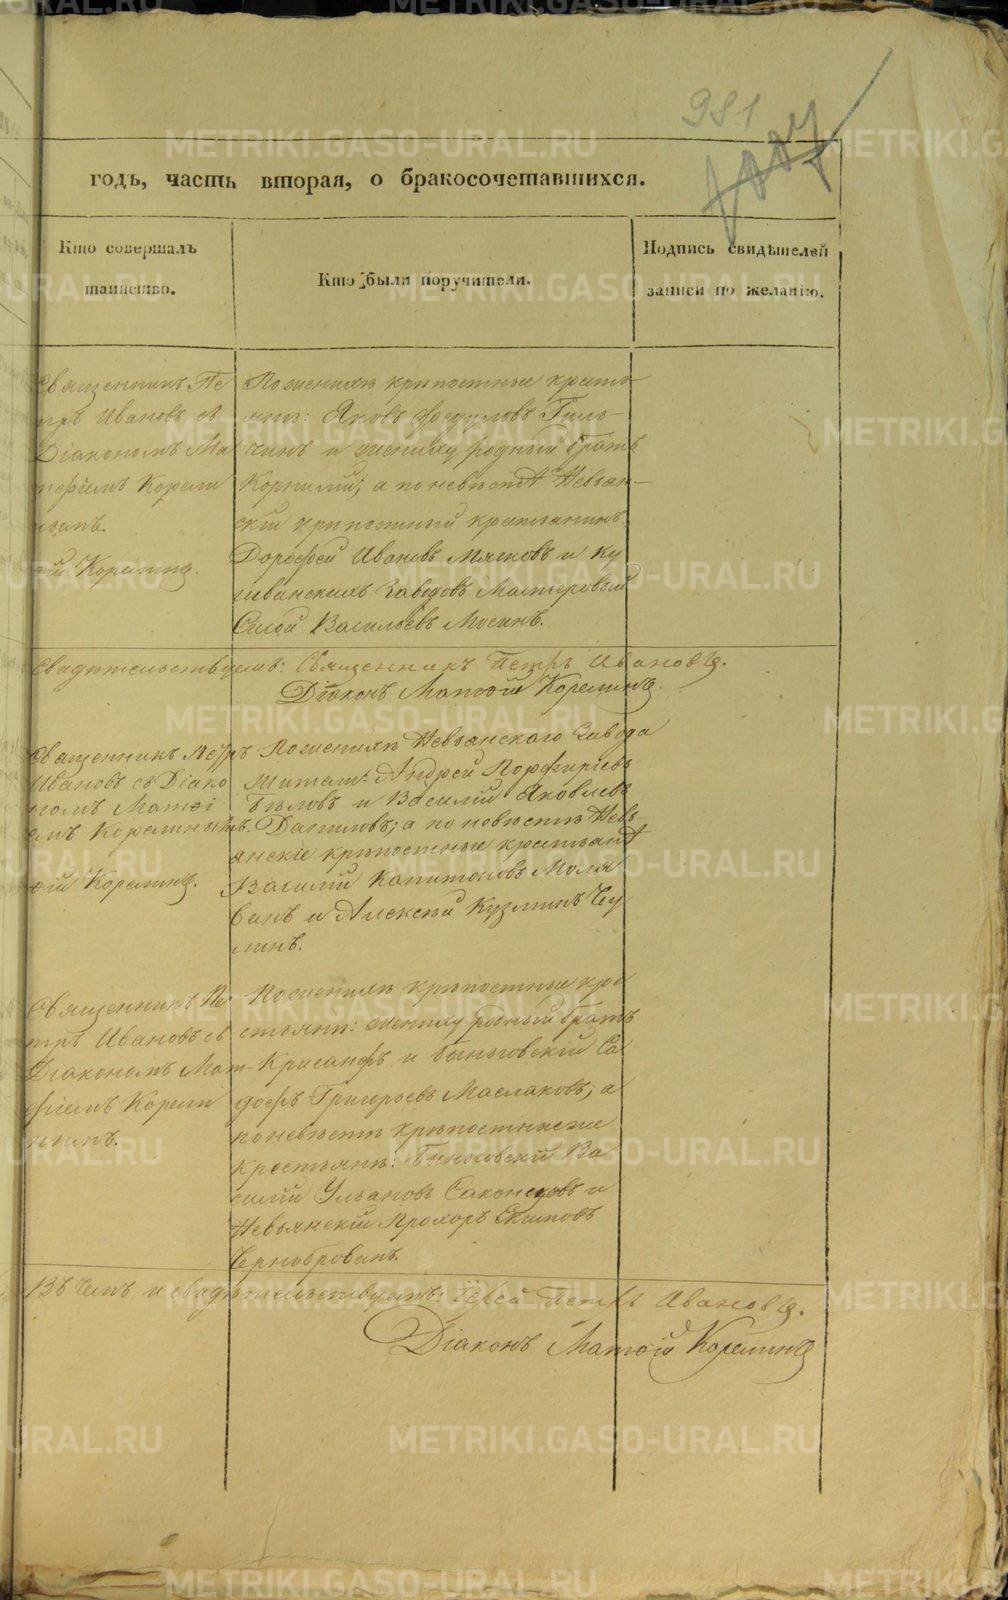 981
1007
годъ, часть вторая, о бракосочетавшихся.
Кто совершалъ
таинство.
Кто были поручители.
Подпись свидѣтелей
записи по желанію.
Священникъ Пе
тръ Ивановъ съ
Діакономъ Ма
тфіемъ Корели
нымъ.
Корелинъ.
По женихѣ крѣпостные кресть
яне: Яковъ Гиль-
чинъ и жениху родный братъ
Корнилій; а по невѣстѣ Невьян-
скій крѣпостный крестьянинъ
Дорофей Ивановъ Мягковъ и Ку
швинскихъ Заводовъ Мастеровый
Сысой Васильевъ Мосинъ.
Свидѣтельствуемъ: Священникъ Петръ Ивановъ.
Діаконъ Матѳій Корелинъ.
Священникъ Петръ
Ивановъ съ Діако
номъ Матѳі
емъ Корелинымъ.
Корелинъ.
По женихѣ Невьянскаго Завода
жители: Андрей Порфирьевъ
Бѣловъ и Василій Яковлевъ
Даниловъ; а по невѣстѣ Невь
янскіе крѣпостные крестьяне
Василій Капитоновъ Моля
винъ и Алексѣй Кузминъ Чу
линъ.
Священникъ Пе
тръ Ивановъ съ
Діакономъ Мат
фіемъ Корели
нымъ.
По женихѣ крѣпостные кре
стьяне: жениху родный братъ
Крисанфъ и Быньговскій Са
дофъ Григорьевъ Маслаковъ; а
по невѣстѣ крѣпостные же
крестьяне: Быньговскій Ва
силій Ульяновъ и
Невьянскій Прохоръ Екимовъ
Чернобровинъ.
Въ чемъ и свидѣтельствуемъ: Іерей Петръ Ивановъ.
Діаконъ Матѳій Корелинъ
METRIKI.GASO-URAL.RU